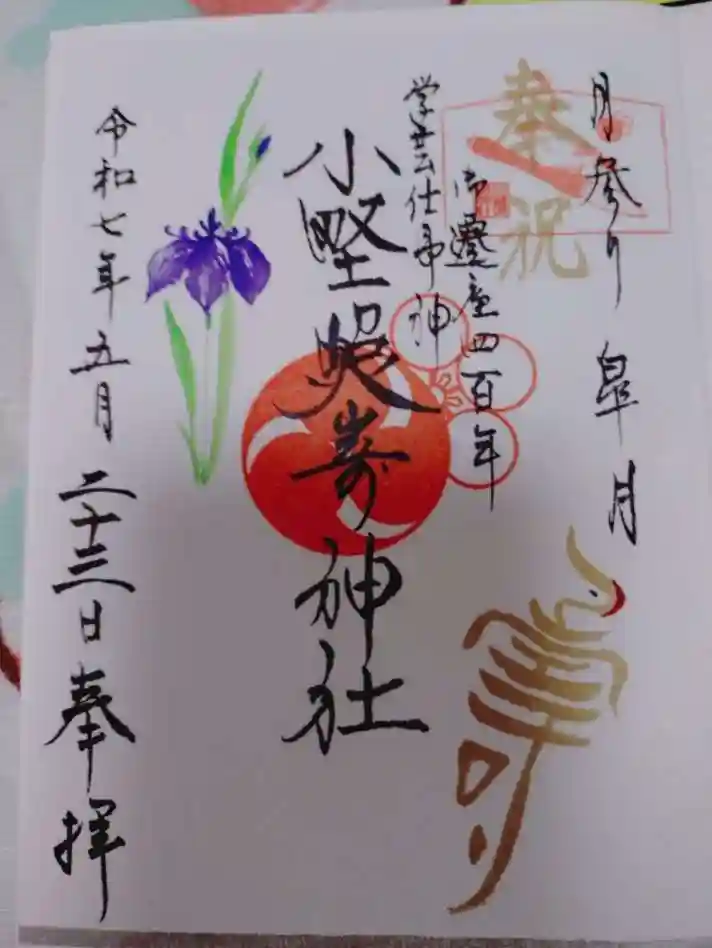 月参り 皐月
奉祝
御遷座四百年
学芸仕事神
小墅照嵜神社
令和七年五月二十三日奉拝